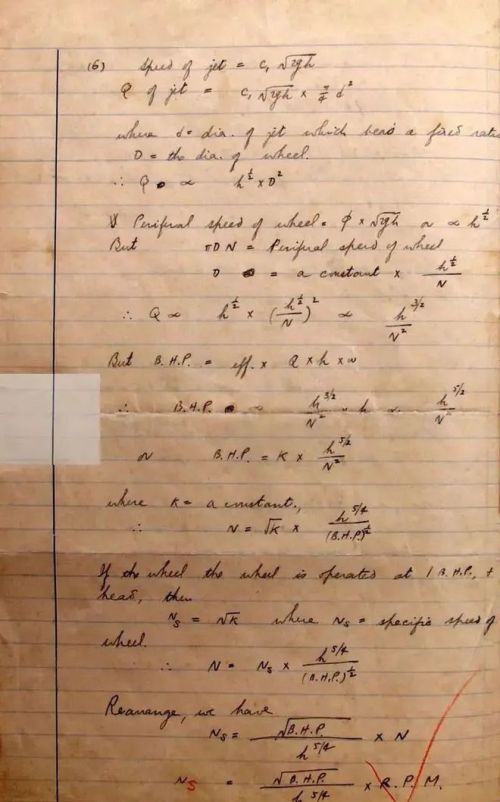 (6) Speed of jet = c₁ √2gh
Q of jet = c₁ √2gh × π/4 d²
where d = dia. of jet which bears a fixed
D = the dia. of wheel.
∴ Q ∝ h^½ × D²
& Periferal speed of wheel = ϕ × √2gh or ∝ h^½
But πDN = Periferal speed of wheel
D = a constant × h^½/N
∴ Q ∝ h^½ × (h^½/N)² ∝ h^3/2/N²
But B.H.P. = eff. × Q × h × w
∴ B.H.P. ∝ h^3/2/N² × h ∝ h^5/2/N²
or B.H.P. = K × h^5/2/N²
where K = a constant.,
∴ N = √K × h^5/4/(B.H.P.)^½
If the wheel the wheel is operated at 1 B.H.P., &
head, then
Ns = √K where Ns = specific speed of
wheel.
∴ N = Ns × h^5/4/(B.H.P.)^½
Rearrange, we have
Ns = √B.H.P./h^5/4 × N
Ns = √B.H.P./h^5/4 × R.P.M.